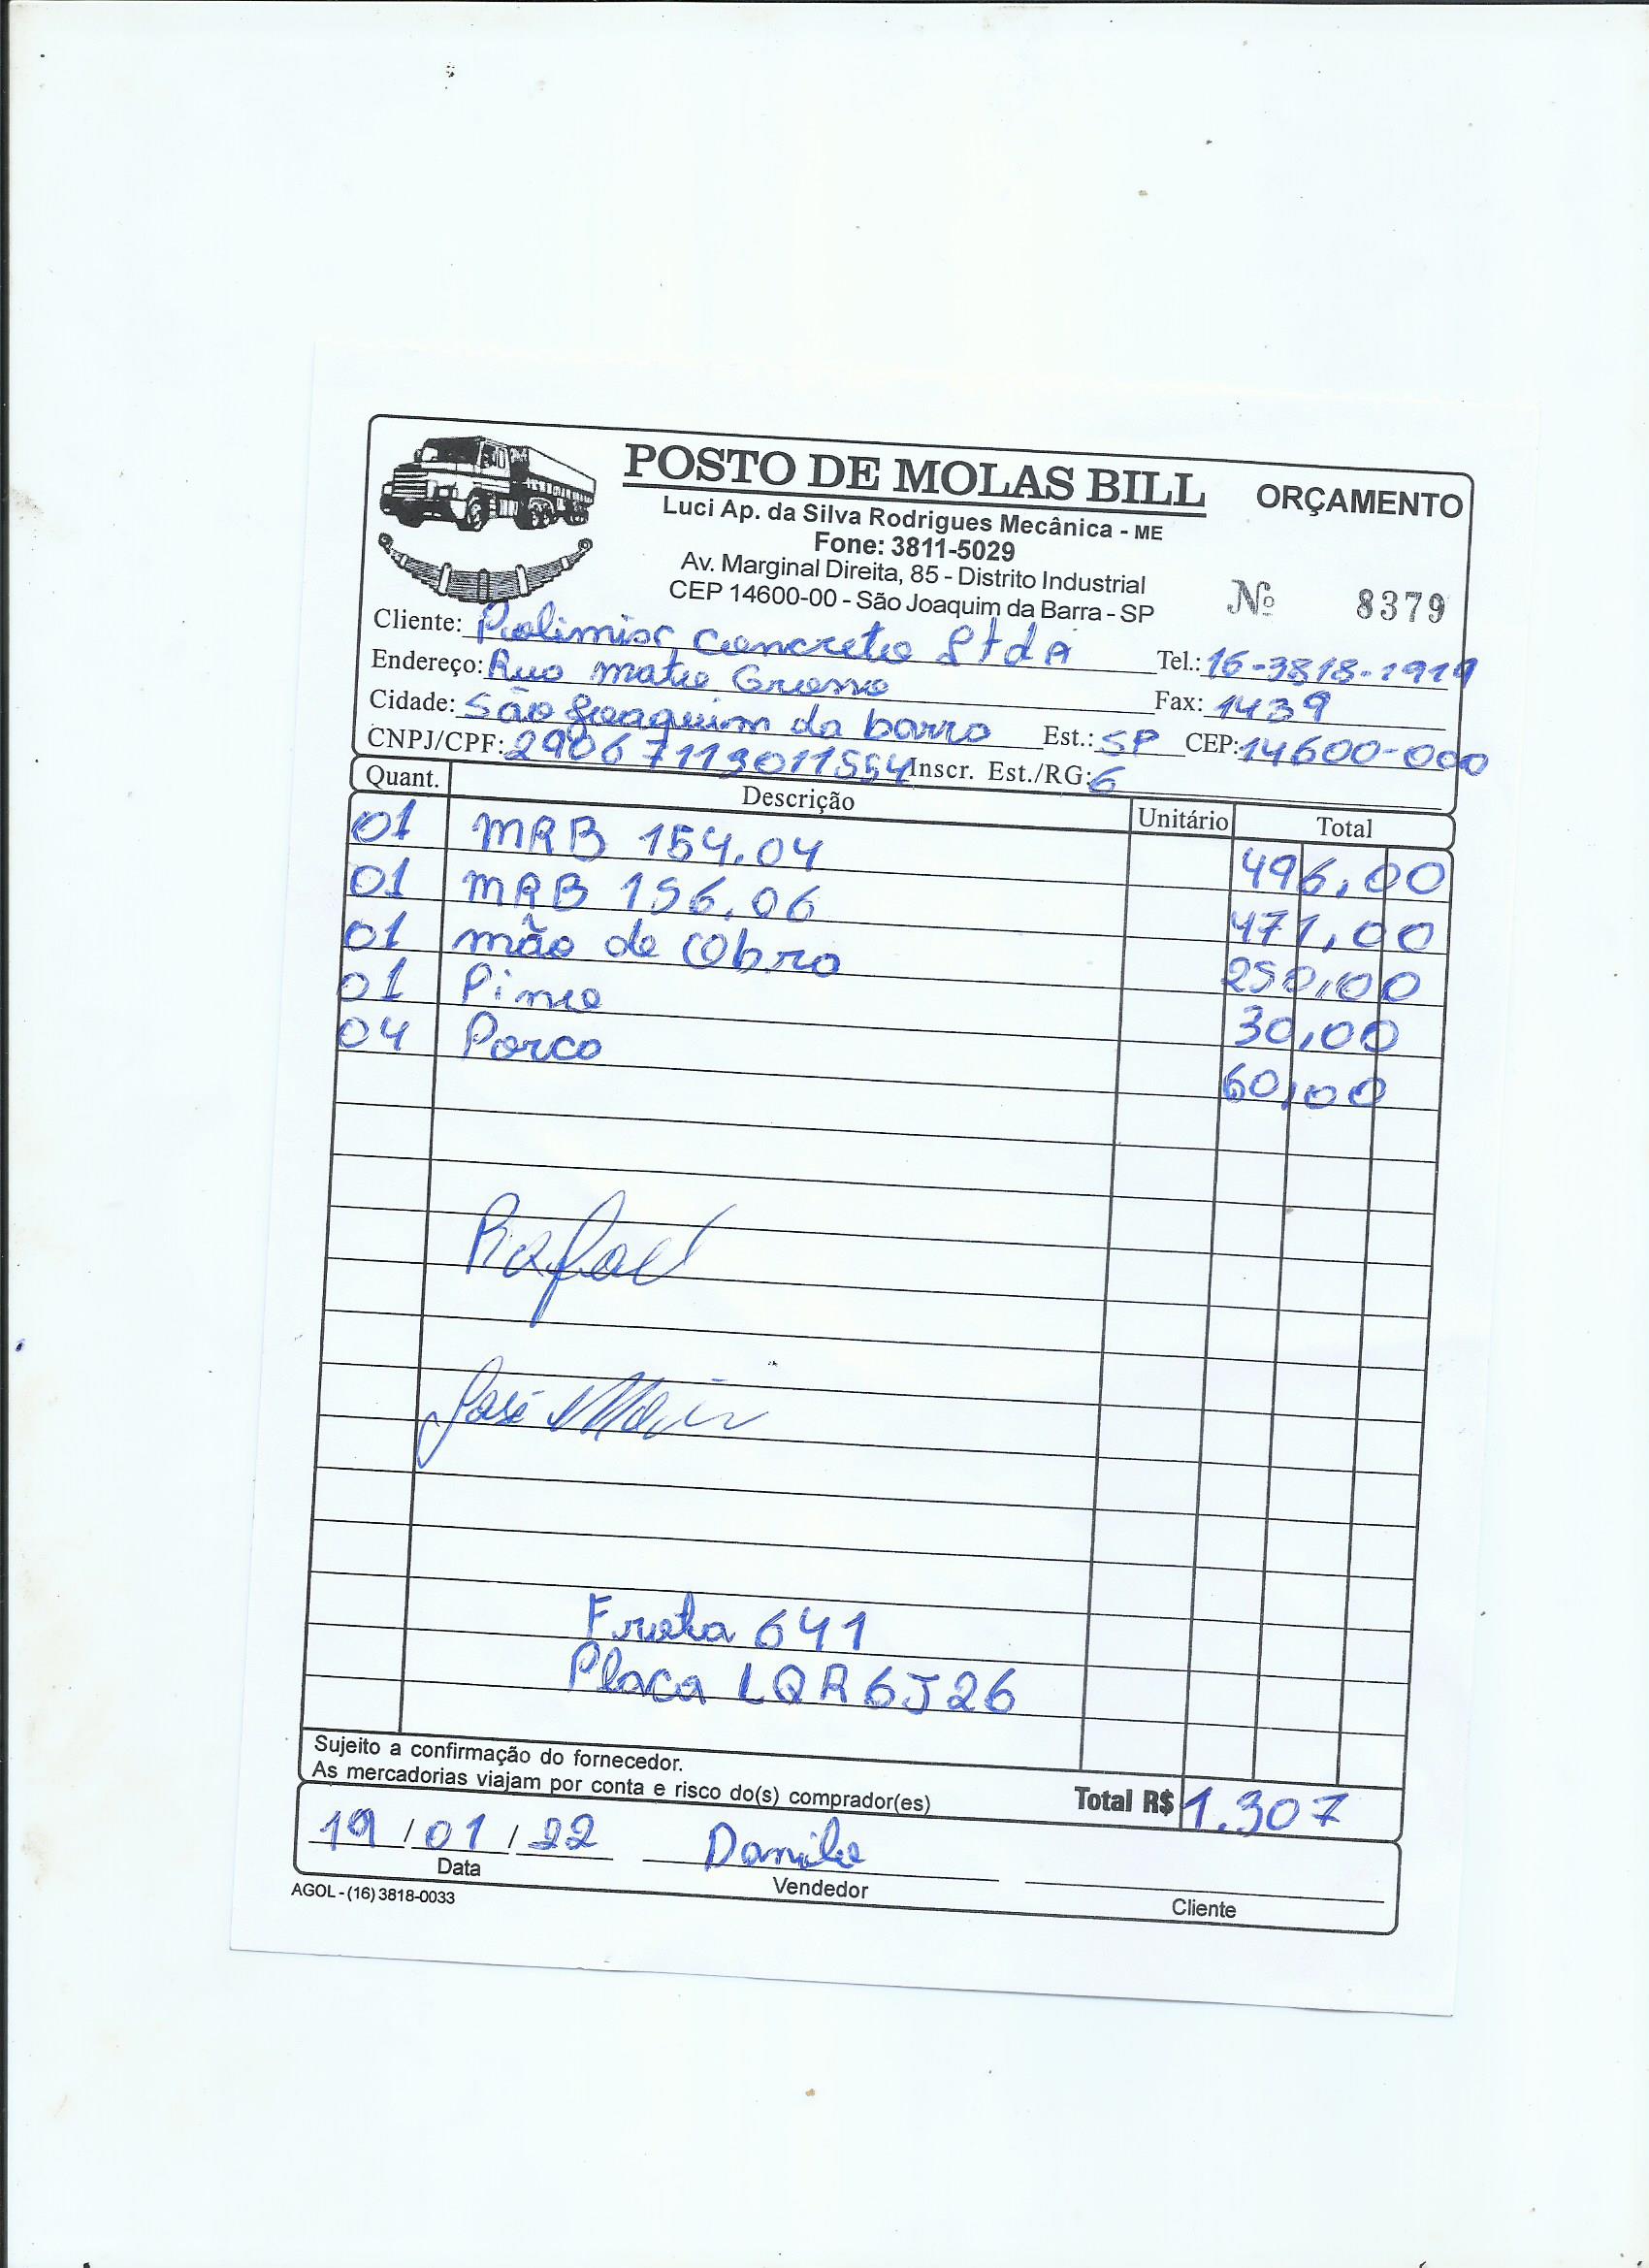 POSTO DE MOLAS BILL ORÇAMENTO
Luci Ap. da Silva Rodrigues Mecânica - ME
Fone: 3811-5029
Av. Marginal Direita, 85 - Distrito Industrial
CEP 14600-00 - São Joaquim da Barra - SP
Nº 8379
Cliente: Polimix Concreto Ltda Tel.: 16-3818-1919
Endereço: Rua Mato Grosso Fax: 1439
Cidade: São Joaquim da barra Est.: SP CEP: 14600-000
CNPJ/CPF: 29067113011554 Inscr. Est./RG: 6
Quant. Descrição Unitário Total
01 MRB 154.04 496,00
01 MRB 156.06 471,00
01 mão de Obra 250,00
01 Pino 30,00
04 Porca 60,00
Rafael
José
Frota 641
Placa LQR6J26
Sujeito a confirmação do fornecedor.
As mercadorias viajam por conta e risco do(s) comprador(es) Total R$ 1.307
19 / 01 / 22 Danilo
Data Vendedor Cliente
AGOL - (16) 3818-0033